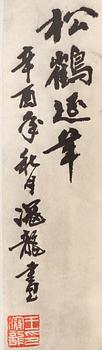 松鶴延年
辛酉年秋月溫龍畫